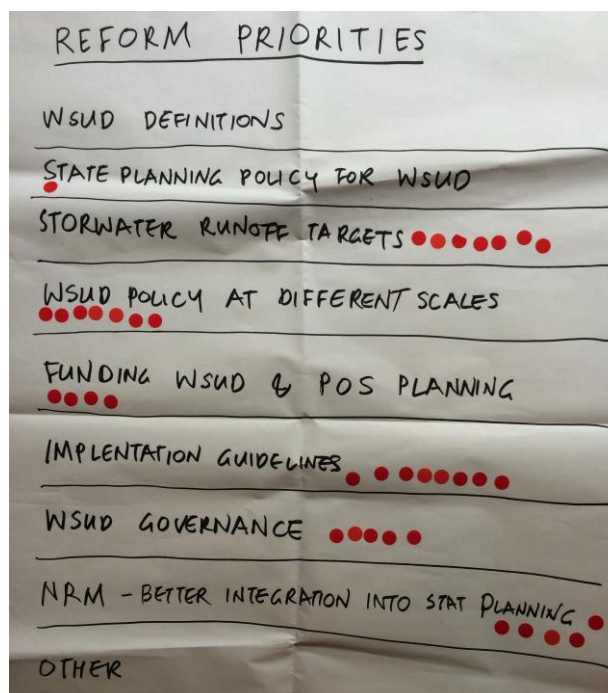 REFORM PRIORITIES
WSUD DEFINITIONS
STATE PLANNING POLICY FOR WSUD
STORWATER RUNOFF TARGETS
WSUD POLICY AT DIFFERENT SCALES
FUNDING WSUD & POS PLANNING
IMPLENTATION GUIDELINES
WSUD GOVERNANCE
NRM - BETTER INTEGRATION INTO STAT PLANNING
OTHER